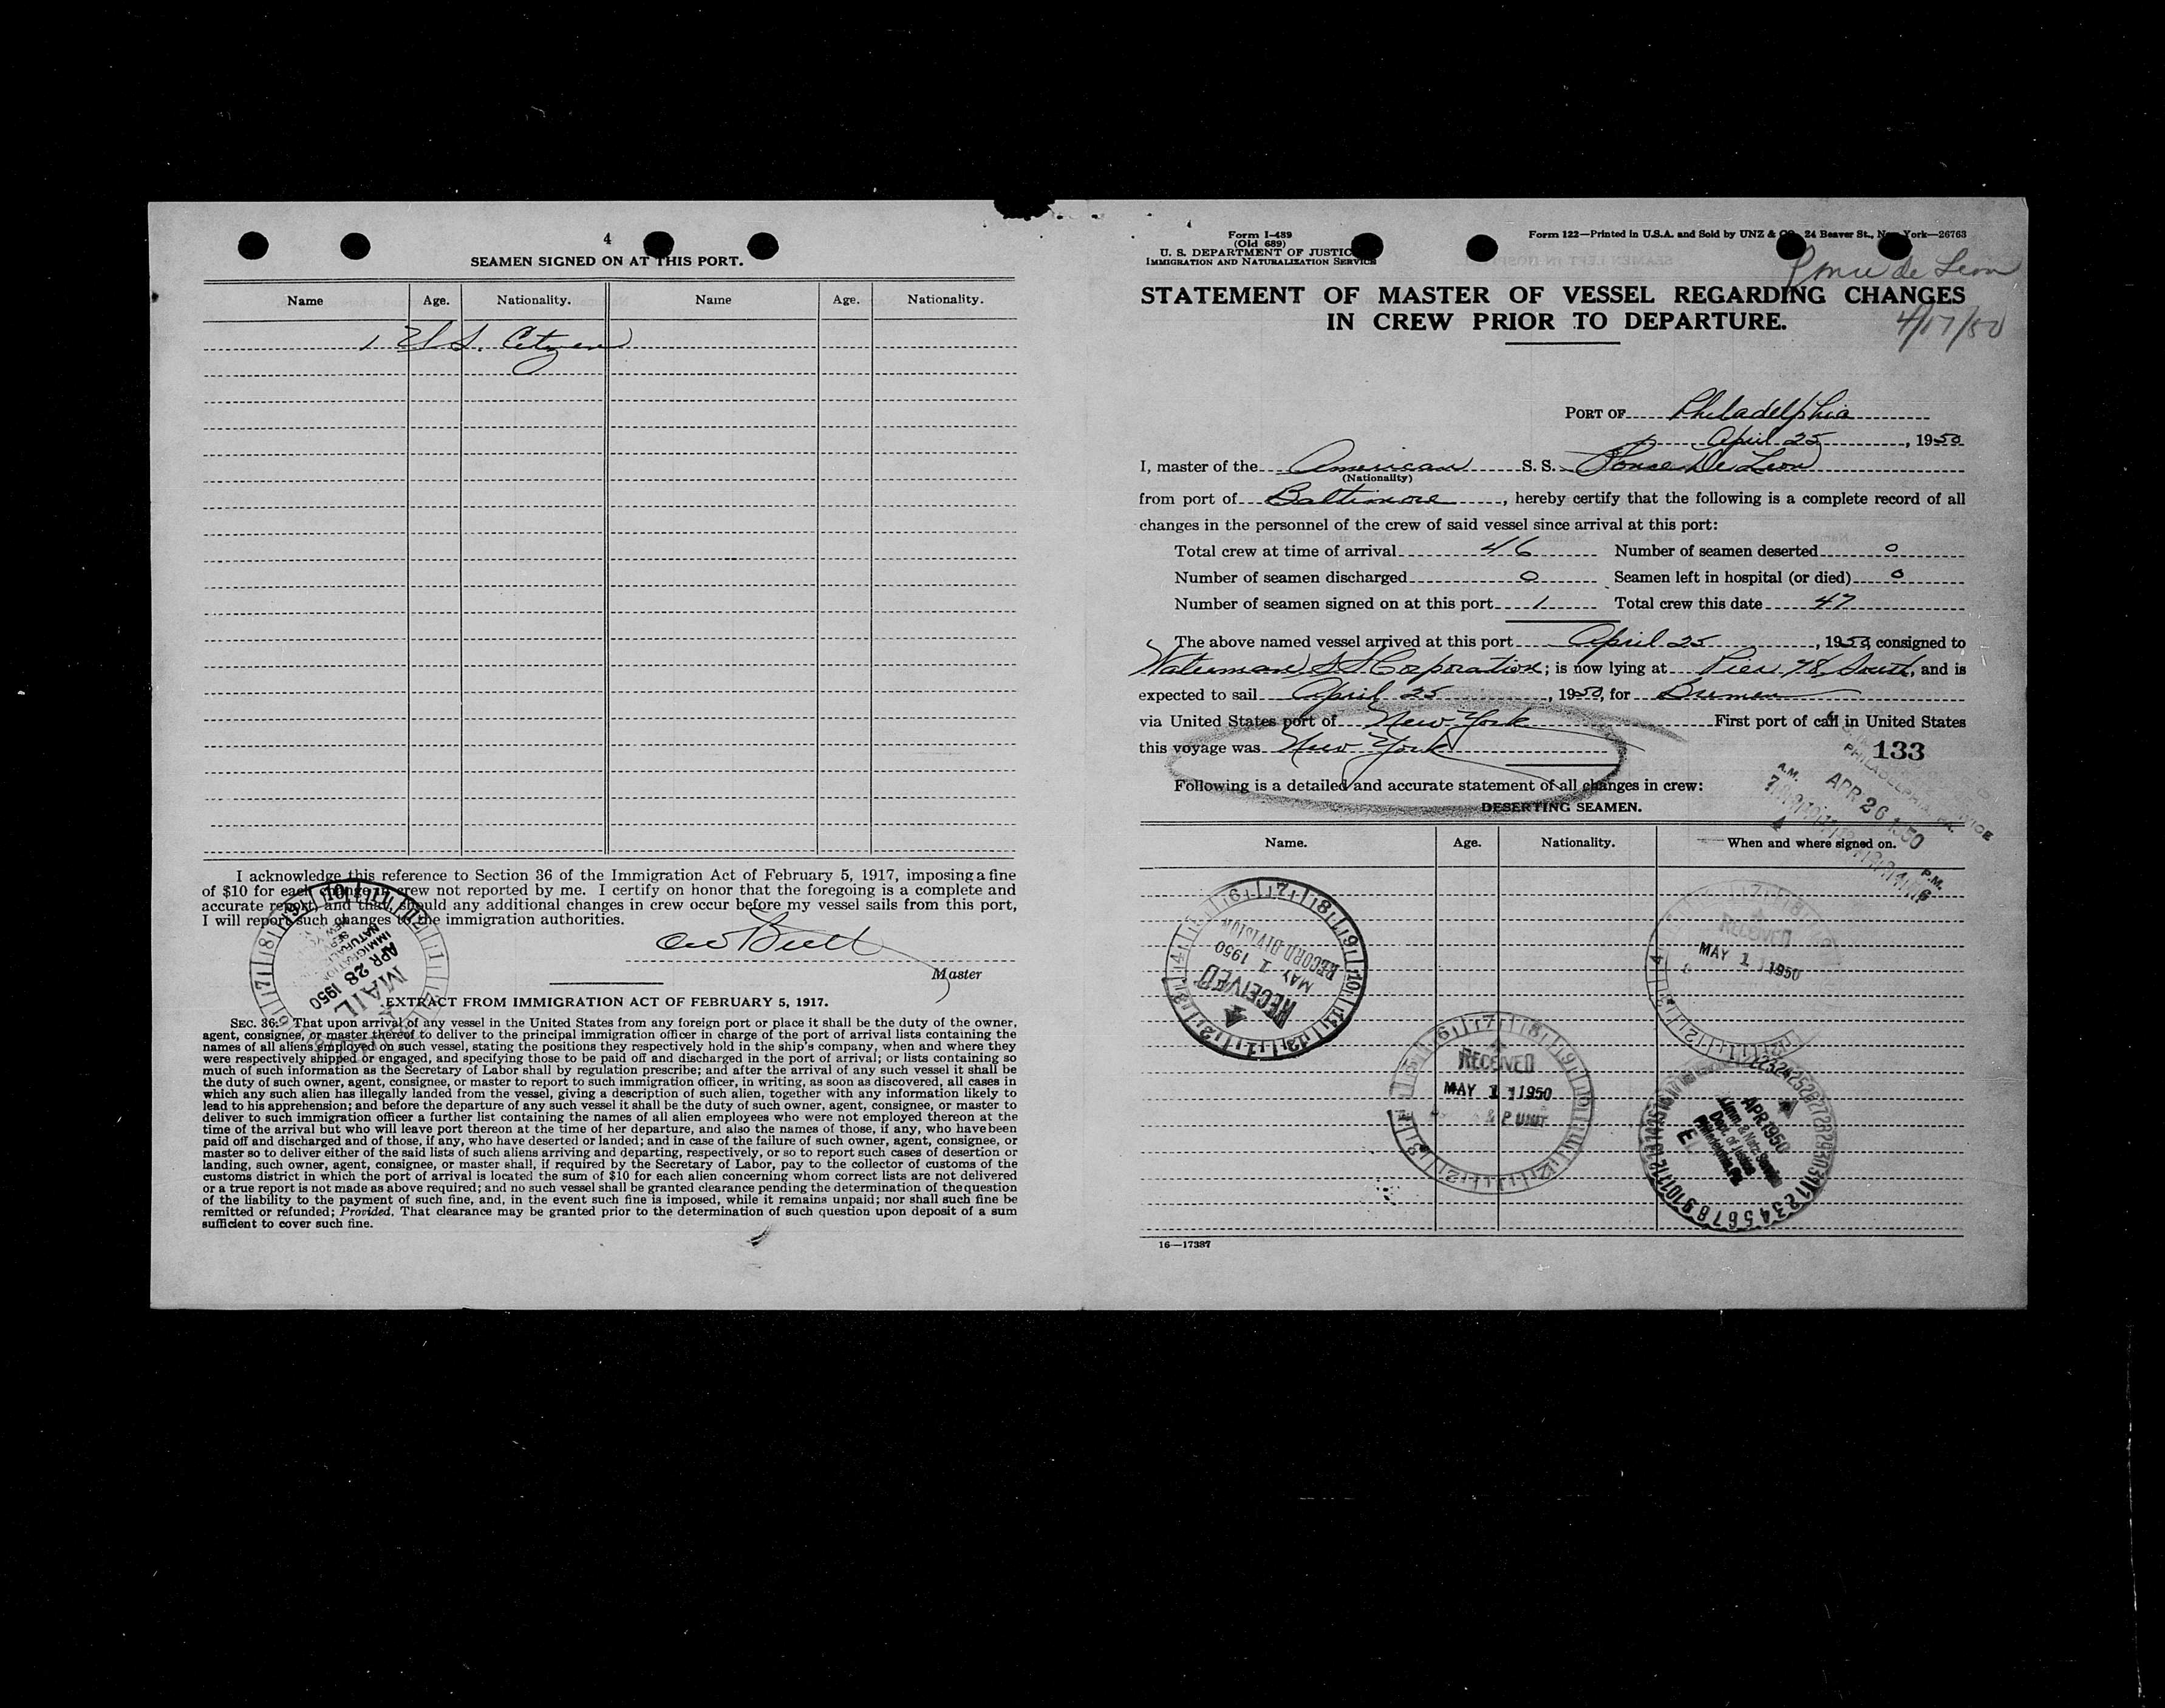 4
SEAMEN SIGNED ON AT THIS PORT.
Name Age. Nationality. Name Age. Nationality.
1 U.S. Citizen
I acknowledge this reference to Section 36 of the Immigration Act of February 5, 1917, imposing a fine
of $10 for each change in crew not reported by me. I certify on honor that the foregoing is a complete and
accurate report, and that, should any additional changes in crew occur before my vessel sails from this port,
I will report such changes to the immigration authorities.
Master
MAIL
APR 28 1950
IMMIGRATION
EXTRACT FROM IMMIGRATION ACT OF FEBRUARY 5, 1917.
SEC. 36. That upon arrival of any vessel in the United States from any foreign port or place it shall be the duty of the owner,
agent, consignee, or master thereof to deliver to the principal immigration officer in charge of the port of arrival lists containing the
names of all aliens employed on such vessel, stating the positions they respectively hold in the ship's company, when and where they
were respectively shipped or engaged, and specifying those to be paid off and discharged in the port of arrival; or lists containing so
much of such information as the Secretary of Labor shall by regulation prescribe; and after the arrival of any such vessel it shall be
the duty of such owner, agent, consignee, or master to report to such immigration officer, in writing, as soon as discovered, all cases in
which any such alien has illegally landed from the vessel, giving a description of such alien, together with any information likely to
lead to his apprehension; and before the departure of any such vessel it shall be the duty of such owner, agent, consignee, or master to
deliver to such immigration officer a further list containing the names of all alien employees who were not employed thereon at the
time of the arrival but who will leave port thereon at the time of her departure, and also the names of those, if any, who have been
paid off and discharged and of those, if any, who have deserted or landed; and in case of the failure of such owner, agent, consignee, or
master so to deliver either of the said lists of such aliens arriving and departing, respectively, or so to report such cases of desertion or
landing, such owner, agent, consignee, or master shall, if required by the Secretary of Labor, pay to the collector of customs of the
customs district in which the port of arrival is located the sum of $10 for each alien concerning whom correct lists are not delivered
or a true report is not made as above required; and no such vessel shall be granted clearance pending the determination of the question
of the liability to the payment of such fine, and, in the event such fine is imposed, while it remains unpaid; nor shall such fine be
remitted or refunded; Provided, That clearance may be granted prior to the determination of such question upon deposit of a sum
sufficient to cover such fine.
Form I-489
(Old 689)
U. S. DEPARTMENT OF JUSTICE
IMMIGRATION AND NATURALIZATION SERVICE
Form 122—Printed in U.S.A. and Sold by UNZ & CO., 24 Beaver St., New York—26763
Ponce de Leon
4/17/50
STATEMENT OF MASTER OF VESSEL REGARDING CHANGES
IN CREW PRIOR TO DEPARTURE.
PORT OF Philadelphia
April 25, 1950
I, master of the American S. S. Ponce De Leon
(Nationality)
from port of Baltimore, hereby certify that the following is a complete record of all
changes in the personnel of the crew of said vessel since arrival at this port:
Total crew at time of arrival 46 Number of seamen deserted 0
Number of seamen discharged 0 Seamen left in hospital (or died) 0
Number of seamen signed on at this port 1 Total crew this date 47
The above named vessel arrived at this port April 25, 1950, consigned to
Waterman SS Corporation; is now lying at Pier 78 South, and is
expected to sail April 25, 1950, for Bremen
via United States port of New York First port of call in United States
this voyage was New York
133
Following is a detailed and accurate statement of all changes in crew:
DESERTING SEAMEN.
PHILADELPHIA, PA.
A.M. APR 26 1950 P.M.
Name. Age. Nationality. When and where signed on.
RECEIVED
MAY 1 1950
RECORD DIVISION
RECEIVED
MAY 1 1950
RECEIVED
MAY 1 1950
& P UNIT
APR 1950
Immi. & Natz. Service
Dept. of Justice
Philadelphia, Pa.
16—17387